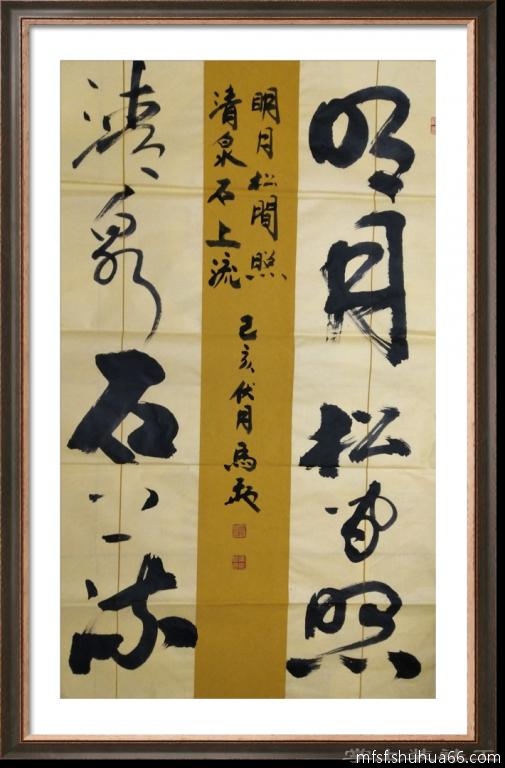 明月松間照
清泉石上流
明月松間照
清泉石上流
己亥伏月馬頠
mfsf.shuhua66.com